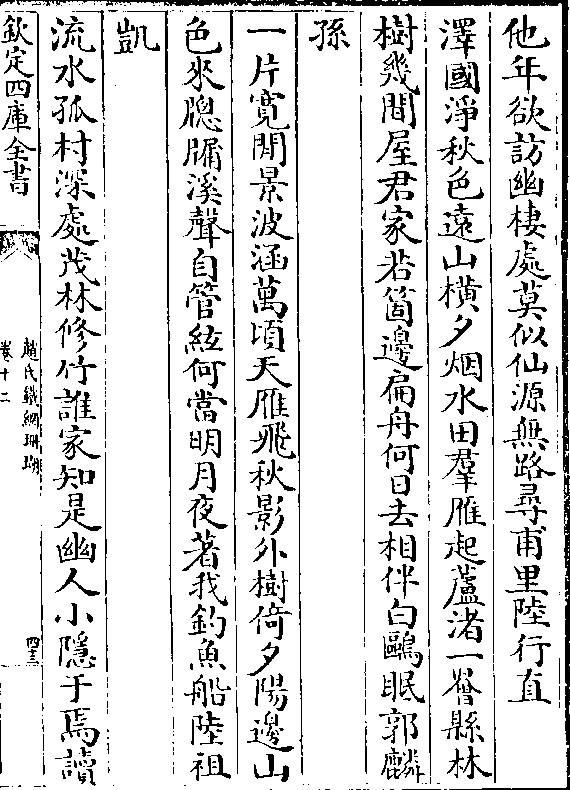 他年欲訪幽棲處莫似仙源無路尋甫里陸行直
澤國淨秋色遠山橫夕烟水田羣雁起蘆渚一罾縣林
樹幾間屋君家若箇邊扁舟何日去相伴白鷗眠郭麟
孫
一片寛閒景波涵萬頃天雁飛秋影外樹倚夕陽邊山
色來牎牖溪聲自管絃何當明月夜著我釣魚船陸祖
凱
流水孤村深處茂林修竹誰家知是幽人小隱于焉讀
欽定四庫全書
趙氏鐵網珊瑚
卷十二
四三